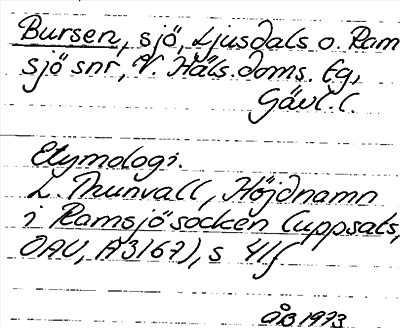 Bursen, sjö, Ljusdals o. Ram
sjö snr, V. Häls. doms. tg,
Gävl. l.
Etymologi.
L. Thunvall, Höjdnamn
i Ramsjö socken (uppsats,
OAU, A 3167), s 41f
ÅB 1973